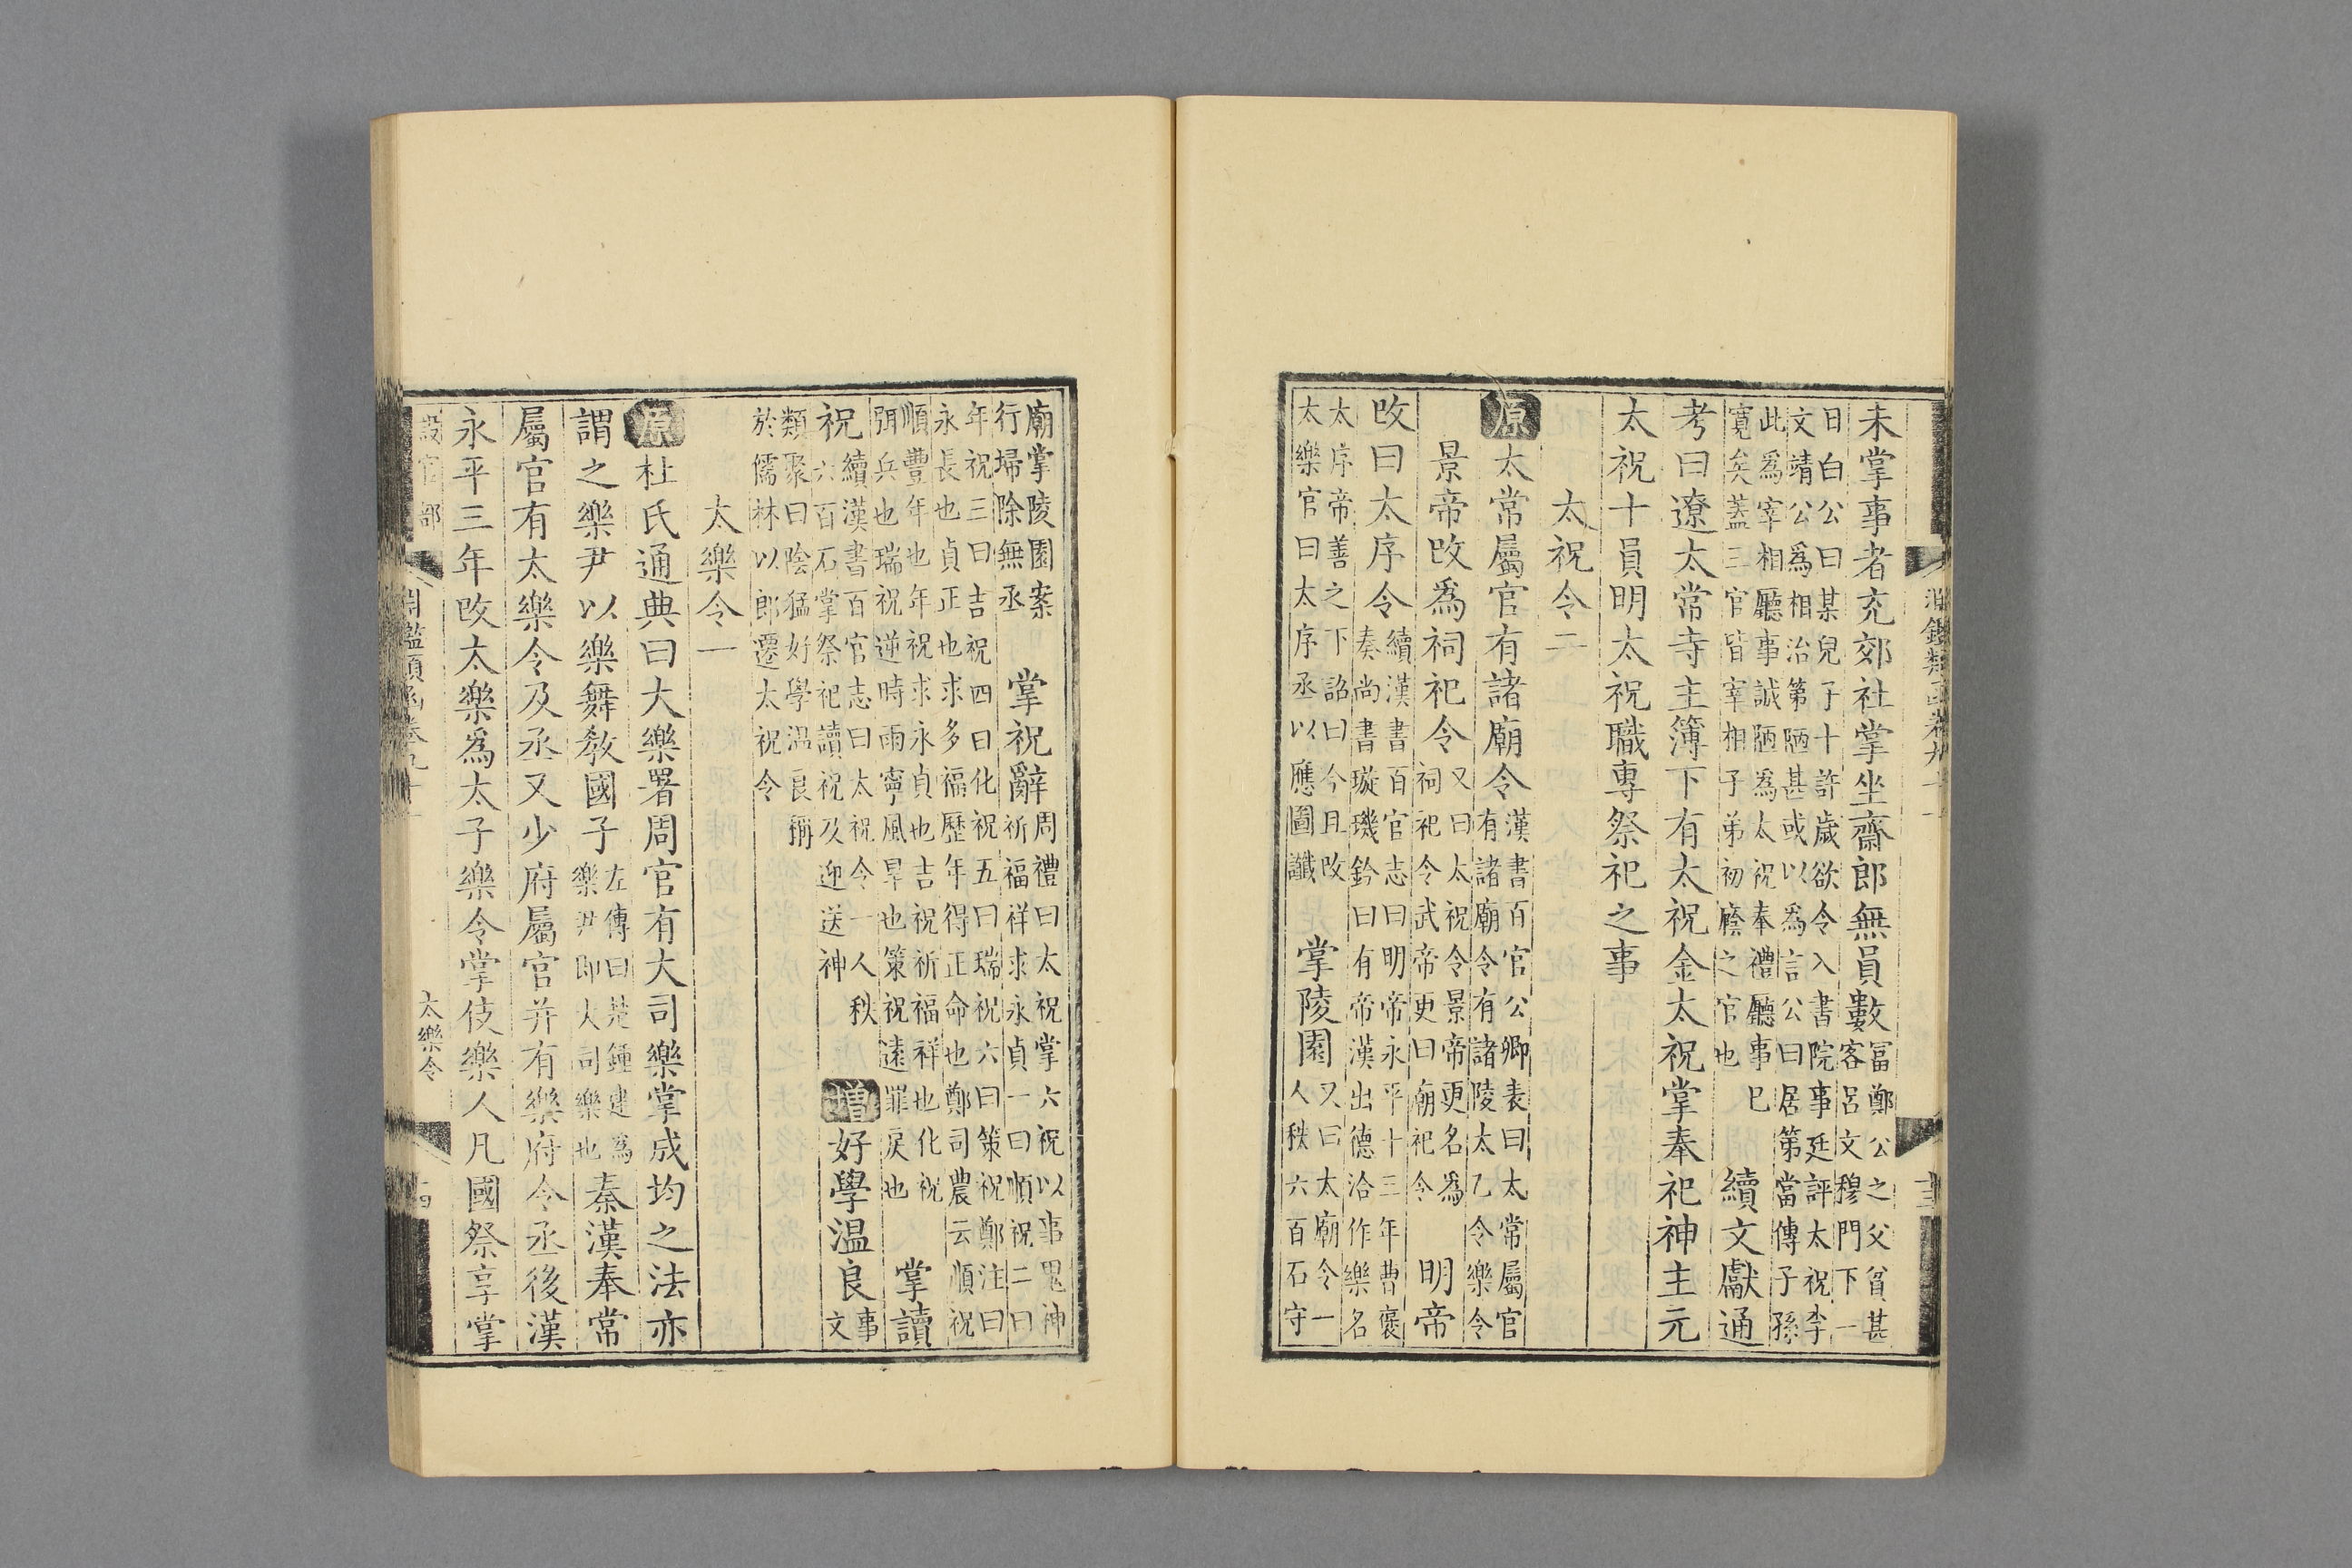 淵鑑類函卷九十一
未掌事者充郊社掌坐齋郎無員數富鄭公之父貧甚
客呂文穆門下一
日白公曰某兒子十許歲欲令入書院事廷評太祝李
文靖公爲相治第陋甚或以爲言公曰居第當傳子孫
此爲宰相廳事誠陋爲太祝奉禮廳事已
寛矣蓋三官皆宰相子弟初廕之官也續文獻通
考曰遼太常寺主簿下有太祝金太祝掌奉祀神主元
太祝十員明太祝職專祭祀之事
太祝令二
原太常屬官有諸廟令漢書百官公卿表曰太常屬官
有諸廟令有諸陵太乙令樂令
景帝改爲祠祀令又曰太祝令景帝更名爲
祠祀令武帝更曰廟祀令明帝
改曰太序令續漢書百官志曰明帝永平十三年曹褒
奏尚書璇璣鈐曰有帝漢出德洽作樂名
太序帝善之下詔曰今且改
太樂官曰太序丞以應圖讖掌陵園又曰太廟令一
人秩六百石守
廟掌陵園案
行埽除無丞掌祝辭周禮曰太祝掌六祝以事鬼神
祈福祥求永貞一曰順祝二曰
年祝三曰吉祝四曰化祝五曰瑞祝六曰策祝鄭注曰
永長也貞正也求多福歷年得正命也鄭司農云順祝
順豐年也年祝求永貞也吉祝祈福祥也化祝
弭兵也瑞祝逆時雨寧風旱也策祝遠罪戾也掌讀
祝續漢書百官志曰太祝令一人秩
六百石掌祭祀讀祝及迎送神增好學温良事
文
類聚曰陰猛好學温良稱
於儒林以郎遷太祝令
太樂令一
原杜氏通典曰大樂署周官有大司樂掌成均之法亦
謂之樂尹以樂舞敎國子左傳曰楚鍾建爲
樂尹即大司樂也秦漢奉常
屬官有太樂令及丞又少府屬官并有樂府令丞後漢
永平三年改太樂爲太子樂令掌伎樂人凡國祭享掌
設官部
淵鑑類函卷九十一
太樂令
十四